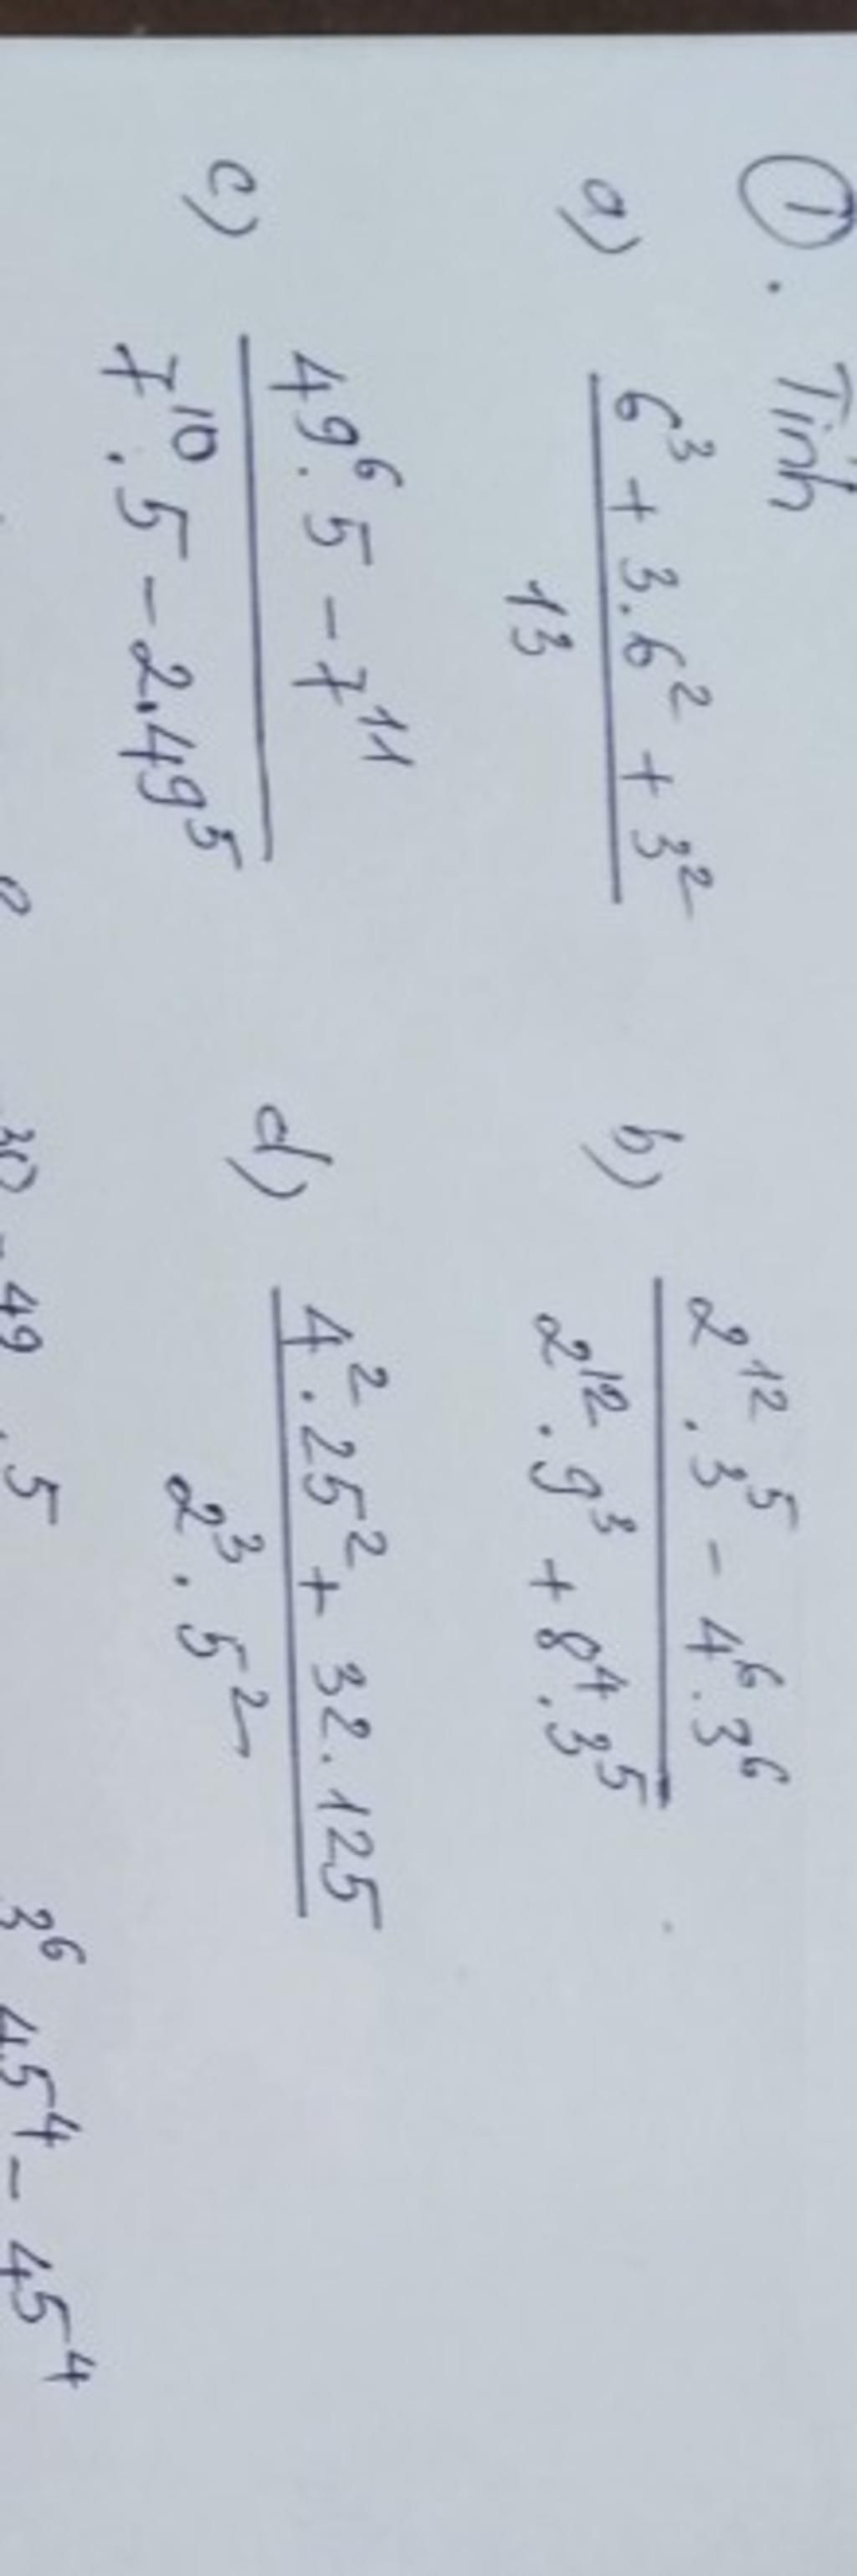 ①. Tính
a) (6³ + 3.6² + 3²) / 13
b) (2¹² . 3⁵ - 4⁶ . 3⁶) / (2¹² . 9³ + 8⁴ . 3⁵)
c) (49⁶ . 5 - 7¹¹) / (7¹⁰ . 5 - 2.49⁵)
d) (4² . 25² + 32 . 125) / (2³ . 5²)
45⁴ - 45⁴